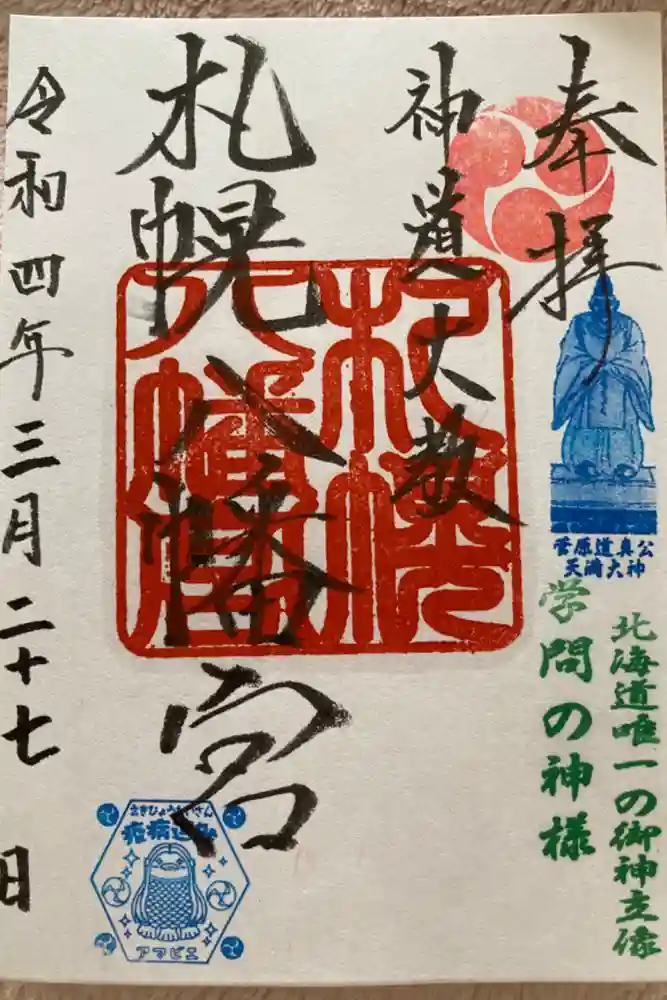 奉拝
菅原道真公
天満大神
北海道唯一の御神立像
学問の神様
神道大教
札幌八幡宮
札幌
八幡宮
えきびょうたいさん
疫病退散
アマビエ
令和四年三月二十七日